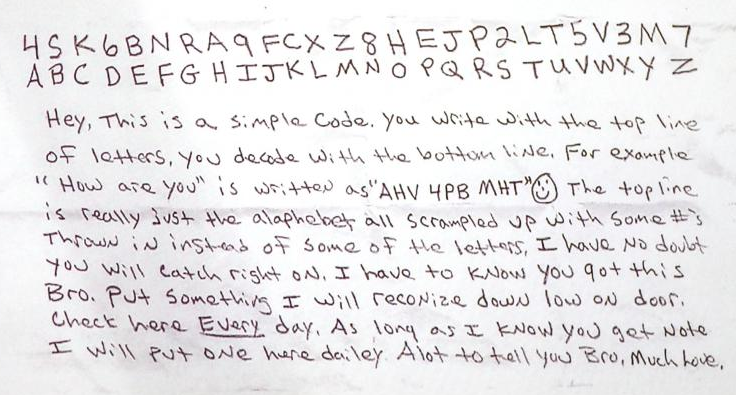 4SK6BNRA9FCXZ8HEJP2LT5V3M7
ABCDEFGHIJKLMNOPQRSTUVWXYZ
Hey, This is a simple Code. you write with the top line
of letters, you decode with the bottom line. For example
"How are you" is written as "AHV 4PB MHT" ☺ The top line
is really Just the alaphebet all scrampled up with some #'s
Thrown in instead of some of the letters, I have No doubt
you will catch right on. I have to know you got this
Bro. Put something I will reconize down low on door.
Check here Every day. As long as I know you get Note
I will put one here dailey. Alot to tell you Bro, Much Love.